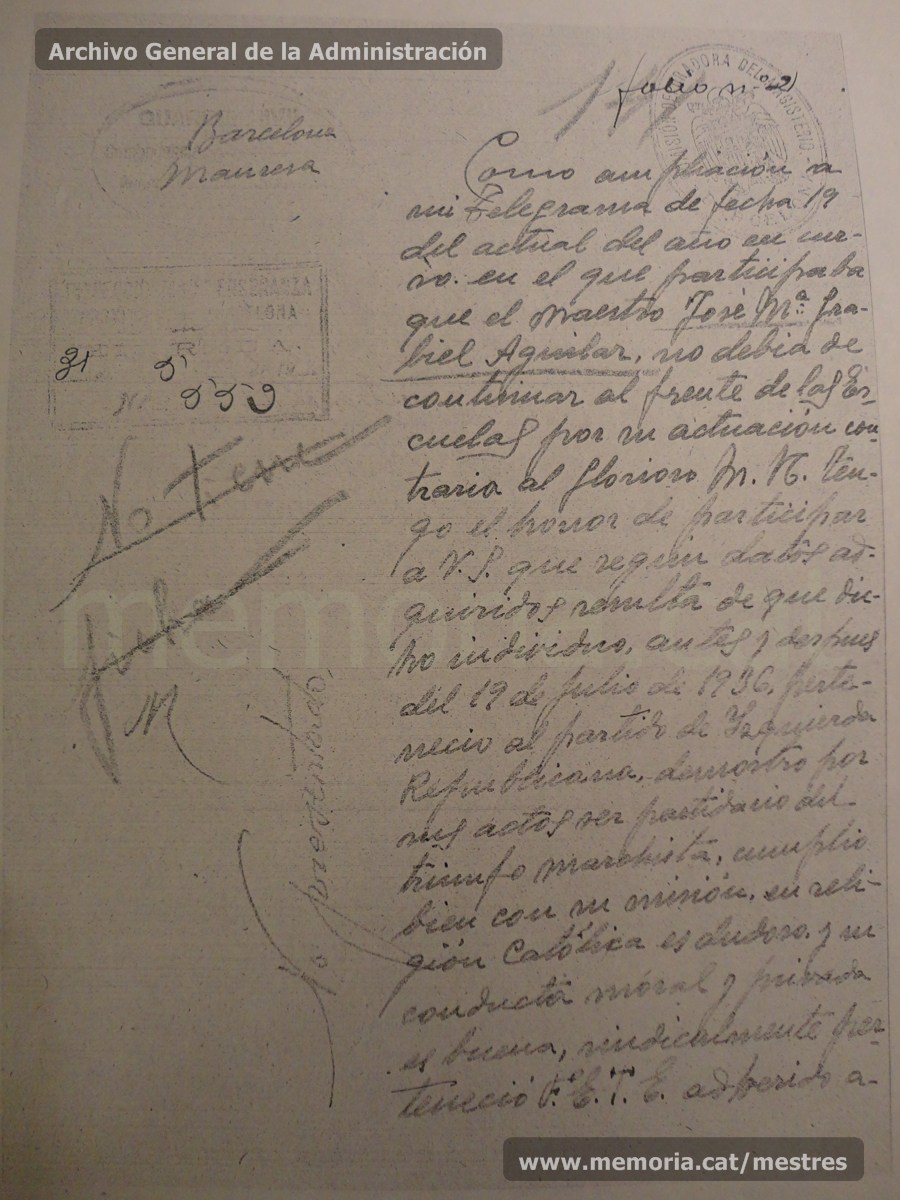 Archivo General de la Administración
folio n. 2
Barcelona
Manresa
Como ampliación a
mi Telegrama de fecha 19
del actual del año en cur-
so. en el que participaba
que el Maestro José Mª. Gra-
biel Aguilar, no debia de
continuar al frente de las Es-
cuelas por su actuación con-
traria al Glorioso M. N. Ten-
go el honor de participar
a V. S. que segun datos ad-
quiridos resulta de que dic-
ho individuo, antes y despues
del 19 de Julio de 1936, perte-
necio al partido de Izquierda
Republicana, demostro por
sus actos ser partidario del
triunfo Marchista, cumplio
bien con su misión, en reli-
gión Católica es dudoso, y su
conducta móral y privada
es buena, sindicalmente per-
teneció F. E. T. E. adherido a-
31 5
559
No Tiene
ficha
M
No presentado
www.memoria.cat/mestres